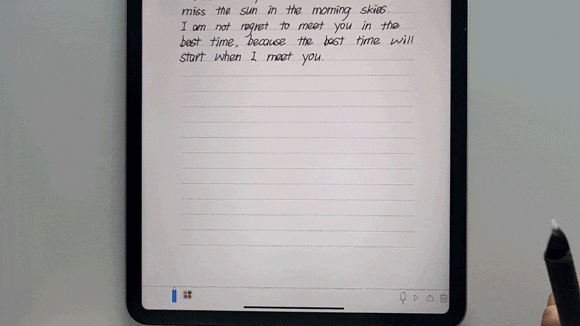 miss the sun in the morning skies.
I am not regret to meet you in the
best time, because the best time will
start when I meet you.